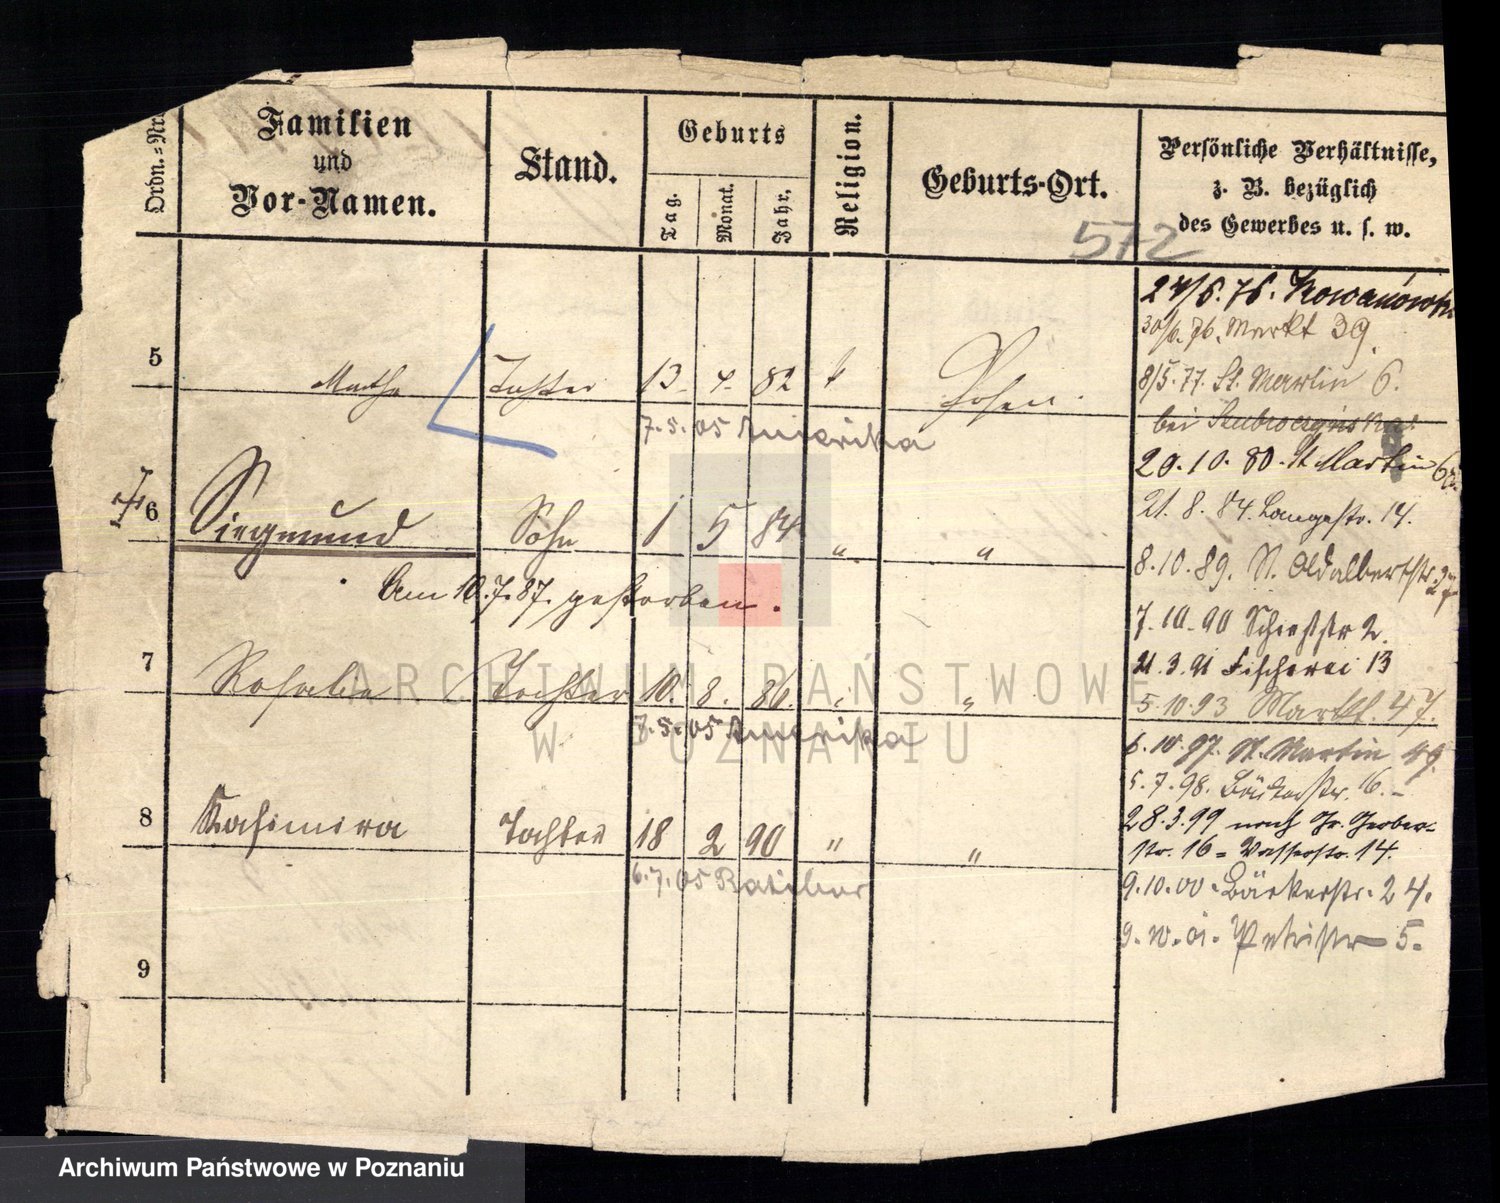 Ordn.-Nr.
Familien
und
Vor-Namen.
Stand.
Geburts
Tag.
Monat.
Jahr.
Religion.
Geburts-Ort.
Persönliche Verhältnisse,
z. B. bezüglich
des Gewerbes u. s. w.
572
5 Martha Tochter 13. 4. 82 k Posen.
7.5.05 Amerika
6 Siegmund Sohn 1 5 84 " "
Am 10.7.87. gestorben.
7 Rosalie Tochter 10. 8. 86. " "
7.5.05 Amerika
8 Kasimira Tochter 18 2 90 " "
6.7.05 Ratibor
9
24/6.76. Kowanówko
30/6.76. Markt 39.
8/5.77. St. Martin 6.
bei
20.10.80. St Martin
21.8.84. Langestr. 14.
8.10.89. St. Adalbertstr.
7.10.90 Schießstr 2.
21.3.91 Fischerei 13
5.10.93 Markt. 47.
6.10.97. St. Martin 49.
5.7.98. Bäckerstr. 16.-
28.3.99 nach Gr. Gerber-
str. 16 = Wasserstr. 14.
9.10.00. Bäckerstr. 24.
9.10.01. Petristr 5.
ARCHIWUM PAŃSTWOWE
W POZNANIU
Archiwum Państwowe w Poznaniu